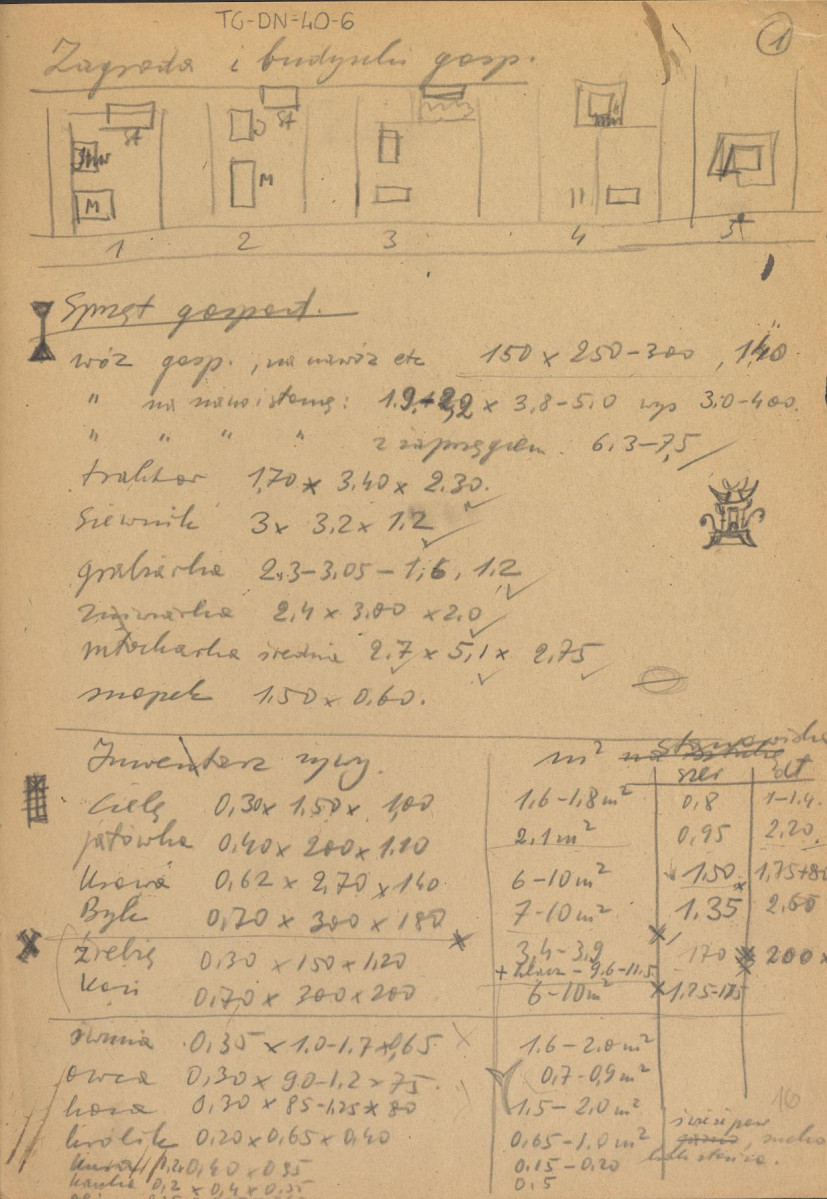 TG-DN-40-6
1
Zagroda i budynki gosp.
St
Inw
M
St
M
1 2 3 4 5
Sprzęt gospod.
wóz gosp., na nawóz etc 150 x 250-300, 1,40
" na : 1.9 x 3,8-5,0 wys 3,0-400.
" " " " z zaprzęgiem 6,3-7,5
traktor 1,70 x 3,40 x 2,30.
Siewnik 3 x 3,2 x 1,2
grabiarka 2,3-3,05-1,6, 1,2
żniwiarka 2,4 x 3,00 x 2,0
młockarka średnia 2,7 x 5,1 x 2,75
snopek 1,50 x 0,60.
Inwentarz żywy. m² stanowiska
szer dł
Cielę 0,30 x 1,50 x 1,00 1,6-1,8 m² 0,8 1-1,4.
jałówka 0,40 x 200 x 1.10 2,1 m² 0,95 2,20.
Krowa 0,62 x 2,70 x 140 6-10 m² 1,50 1,75+80
Byk 0,70 x 300 x 180 7-10 m² 1,35 2,60
źrebię 0,30 x 150 x 1,20 3,4-3,9 170 200 x
+ klacz - 9,6-11,5
Koń 0,70 x 300 x 200 6-10 m² 1,25-175
świnia 0,35 x 1.0-1.7 x 0,65 1.6-2.0 m²
owca 0,30 x 90-1.2 x 75. 0,7-0,9 m²
koza 0,30 x 85-1,25 x 80 1,5-2,0 m²
16
królik 0,20 x 0,65 x 0,40 0,65-1.0 m² sucho
kura 0,40 x 0,35 0,15-0,20
kaczka 0,2 x 0,4 x 0,35 0,5